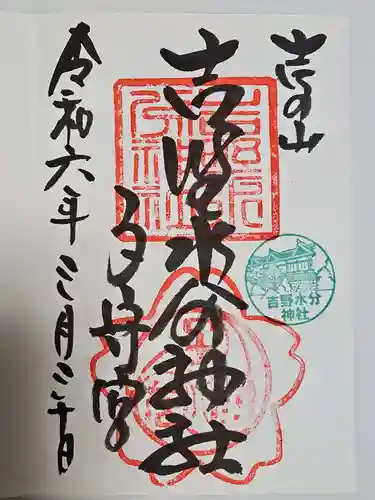 吉の山
吉野水分神社
子守宮
令和六年三月三十日
吉野水分
神社